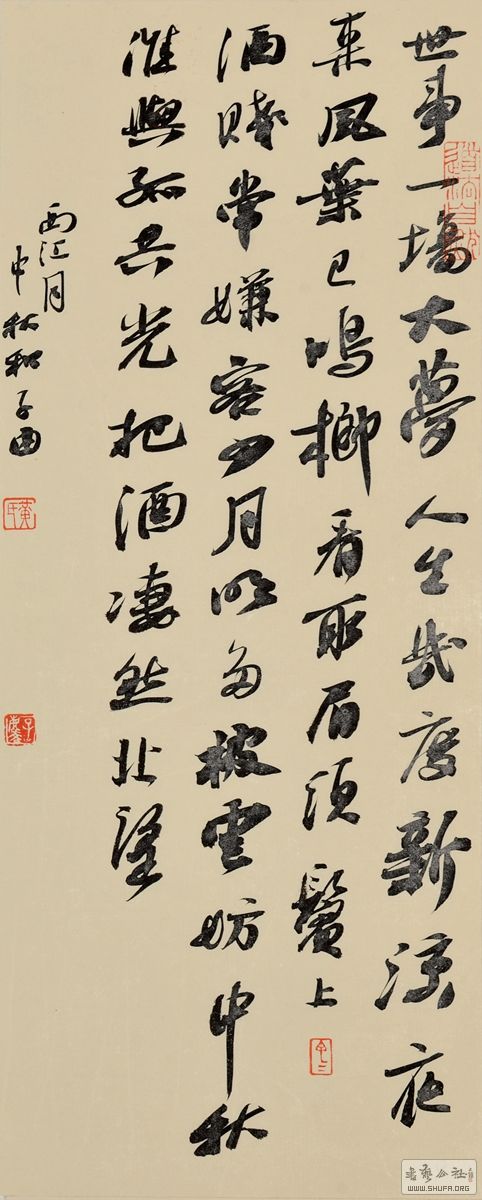 世事一場大夢人生幾度新涼夜
來風葉已鳴榔看取眉須鬢上
酒賤常嫌客少月明多被雲妨中秋
誰與孤共光把酒淒然北望
西江月
中秋和子由
黃氏
书艺公社
WWW.SHUFA.ORG